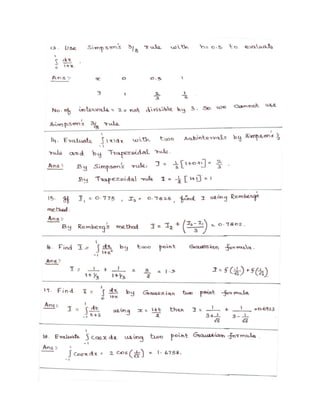 13. Use Simpson's 3/8 rule with h=0.5 to evaluate
∫₀¹ dx/(1+x).
Ans: x 0 0.5 1
y 1 2/3 1/2
No. of intervals = 2 = not divisible by 3. So we cannot use
Simpson's 3/8 rule
14. Evaluate ∫₋₁¹ |x| dx with two subintervals by Simpson's 1/3
rule and by Trapezoidal rule.
Ans: By Simpson's rule: I = 1/3 [1+0+1] = 2/3
By Trapezoidal rule I = 1/2 [1+1] = 1
15. If I₁ = 0.775, I₂ = 0.7828, find I using Romberg's
method.
Ans:
By Romberg's method I = I₂ + (I₂-I₁ / 3) = 0.7802.
16. Find I = ∫₋₁¹ dx/(1+x²) by two point Gaussian formula.
Ans:
I = 1/(1+1/3) + 1/(1+1/3) = 1.5
17. Find I = ∫₀¹ dx/(1+x) by Gaussian two point formula
Ans: I = ∫₋₁¹ dt/(t+3) using x = (1+t)/2 then I = 1/(3+1/√3) + 1/(3-1/√3)
18. Evaluate ∫₋₁¹ cosx dx using two point Gaussian formula.
Ans:
∫₋₁¹ cosx dx = 2 cos(1/√3) = 1.6758.